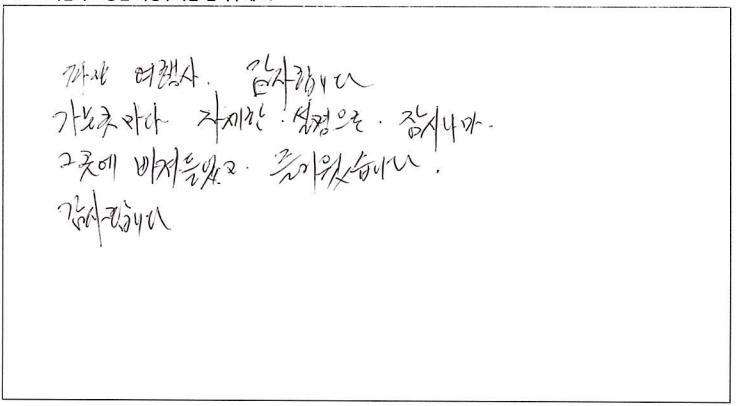 여행사. 감사합니다
가는곳마다 자세한 설명으로. 잠시나마.
그곳에 빠져들었고. 즐거웠습니다.
감사합니다